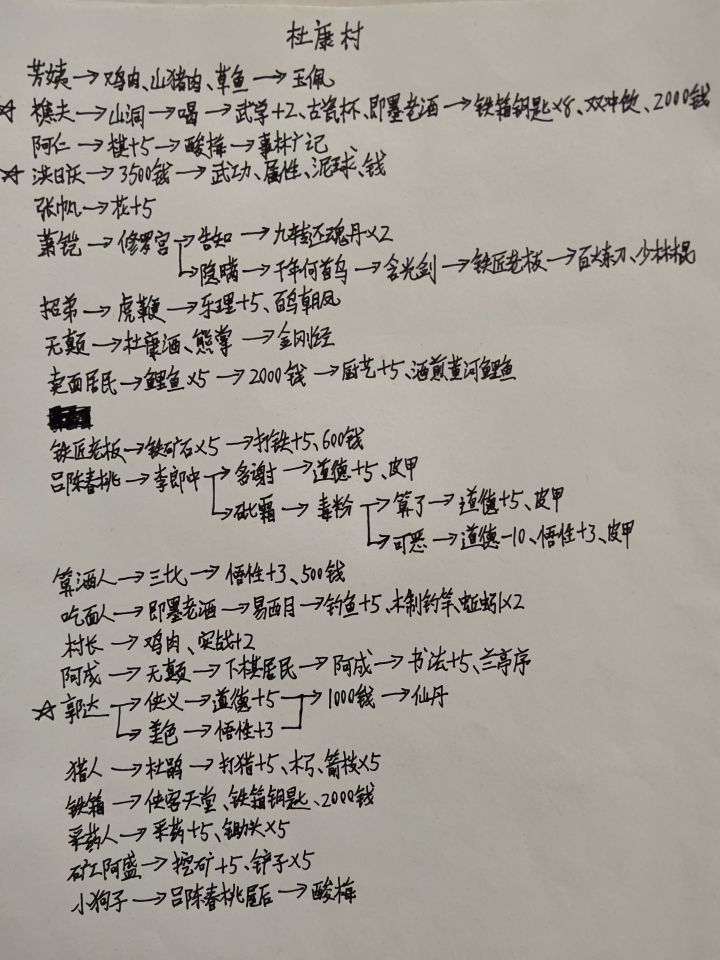 杜康村
芳姨→鸡肉、山猪肉、草鱼→玉佩
☆ 樵夫→山洞→喝→武学+2、古瓷杯、即墨老酒→铁箱钥匙×8、双冲饮、2000钱
阿仁→棋+5→酸梅→事林广记
☆ 洪日庆→3500钱→武功、属性、泥球、钱
张帆→花+5
萧铠→修罗宫→告知→九转还魂丹×2
→隐瞒→千年何首乌→含光剑→铁匠老板→百炼刀、少林棍
招弟→虎鞭→乐理+5、百鸟朝凤
无颠→杜康酒、熊掌→金刚经
卖面居民→鲤鱼×5→2000钱→厨艺+5、酒煎黄河鲤鱼
铁匠老板→铁矿石×5→打铁+5、600钱
吕陈春桃→李郎中→多谢→道德+5、皮甲
→砒霜→毒粉→算了→道德+5、皮甲
→可恶→道德-10、悟性+3、皮甲
算酒人→三比→悟性+3、500钱
吃面人→即墨老酒→易西目→钓鱼+5、木制钓竿、蚯蚓×2
村长→鸡肉、实战+2
阿成→无颠→下棋居民→阿成→书法+5、兰亭序
☆ 郭达→侠义→道德+5→1000钱→仙丹
→美色→悟性+3
猎人→杜鹃→打猎+5、木弓、箭枝×5
铁箱→侠客天堂、铁箱钥匙、2000钱
采药人→采药+5、锄头×5
矿工阿盛→挖矿+5、铲子×5
小狗子→吕陈春桃屋后→酸梅